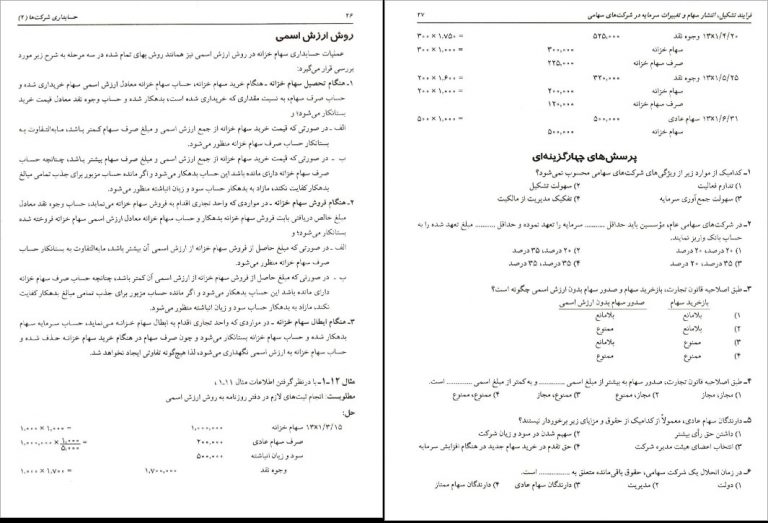 ۲۶
حسابداری شرکت‌ها (۲)
روش ارزش اسمی
عملیات حسابداری سهام خزانه در روش ارزش اسمی نیز همانند روش بهای تمام شده در سه مرحله به شرح زیر مورد
بررسی قرار می‌گیرد:
۱ـ هنگام تحصیل سهام خزانه ـ هنگام خرید سهام خزانه، حساب سهام خزانه معادل ارزش اسمی سهام خریداری شده و
حساب صرف سهام، به نسبت مقداری که خریداری شده است، بدهکار شده و حساب وجوه نقد معادل قیمت خرید
بستانکار می‌شود؛ و
الف ـ در صورتی که قیمت خرید سهام خزانه از جمع ارزش اسمی و مبلغ صرف سهام کمتر باشد، مابه‌التفاوت به
بستانکار حساب صرف سهام خزانه منظور می‌شود.
ب ـ در صورتی که قیمت خرید سهام خزانه از جمع ارزش اسمی و مبلغ صرف سهام بیشتر باشد، چنانچه حساب
صرف سهام خزانه دارای مانده باشد این حساب بدهکار می‌شود و اگر مانده حساب مزبور برای جذب تمامی مبالغ
بدهکار کفایت نکند، مازاد به بدهکار حساب سود و زیان انباشته منظور می‌شود.
۲ـ هنگام فروش سهام خزانه ـ در مواردی که واحد تجاری اقدام به فروش سهام خزانه می‌نماید، حساب وجوه نقد معادل
مبلغ خالص دریافتی بابت فروش سهام خزانه بدهکار و حساب سهام خزانه معادل ارزش اسمی سهام خزانه فروخته شده
بستانکار می‌شود؛ و
الف ـ در صورتی که مبلغ حاصل از فروش سهام خزانه از ارزش اسمی آن بیشتر باشد، مابه‌التفاوت به بستانکار حساب
صرف سهام خزانه منظور می‌شود.
ب ـ در صورتی که مبلغ حاصل از فروش سهام خزانه از ارزش اسمی آن کمتر باشد، چنانچه حساب صرف سهام خزانه
دارای مانده باشد این حساب بدهکار می‌شود و اگر مانده حساب مزبور برای جذب تمامی مبالغ بدهکار کفایت
نکند، مازاد به بدهکار حساب سود و زیان انباشته منظور می‌شود.
۳ـ هنگام ابطال سهام خزانه ـ در مواردی که واحد تجاری اقدام به ابطال سهام خزانه می‌نماید، حساب سرمایه سهام
بدهکار شده و حساب سهام خزانه بستانکار می‌شود و چون صرف سهام در هنگام خرید سهام خزانه حذف شده و
حساب سهام خزانه به ارزش اسمی نگهداری می‌شود، لذا هیچ‌گونه تفاوتی ایجاد نخواهد شد.
مثال ۱۲-۱ـ با در نظر گرفتن اطلاعات مثال ۱.۱۱ ،
مطلوبست: انجام ثبت‌های لازم در دفتر روزنامه به روش ارزش اسمی
حل:
۱۳X۱/۳/۱۵ سهام خزانه ۱،۰۰۰،۰۰۰ ۱،۰۰۰ × ۱،۰۰۰ =
صرف سهام عادی ۲۰۰،۰۰۰ ۱،۰۰۰،۰۰۰ × ۱،۰۰۰/۵،۰۰۰ =
سود و زیان انباشته ۵۰۰،۰۰۰
وجوه نقد ۱،۷۰۰،۰۰۰ ۱،۰۰۰ × ۱،۷۰۰ =
فرایند تشکیل، انتشار سهام و تغییرات سرمایه در شرکت‌های سهامی
۲۷
۱۳X۱/۴/۲۰ وجوه نقد ۵۲۵،۰۰۰ ۳۰۰ × ۱،۷۵۰ =
سهام خزانه ۳۰۰،۰۰۰ ۳۰۰ × ۱،۰۰۰ =
صرف سهام خزانه ۲۲۵،۰۰۰
۱۳X۱/۵/۲۵ وجوه نقد ۳۲۰،۰۰۰ ۲۰۰ × ۱،۶۰۰ =
سهام خزانه ۲۰۰،۰۰۰ ۲۰۰ × ۱،۰۰۰ =
صرف سهام خزانه ۱۲۰،۰۰۰
۱۳X۱/۶/۳۱ سهام عادی ۵۰۰،۰۰۰ ۵۰۰ × ۱،۰۰۰ =
سهام خزانه ۵۰۰،۰۰۰
پرسش‌های چهارگزینه‌ای
۱ـ کدامیک از موارد زیر از ویژگی‌های شرکت‌های سهامی محسوب نمی‌شود؟
۱) تداوم فعالیت ۲) سهولت تشکیل
۳) سهولت جمع‌آوری سرمایه ۴) تفکیک مدیریت از مالکیت
۲ـ در شرکت‌های سهامی عام، مؤسسین باید حداقل .......... سرمایه را تعهد نموده و حداقل .......... مبلغ تعهد شده را به
حساب بانک واریز نمایند.
۱) ۲۰ درصد، ۲۰ درصد ۲) ۲۰ درصد، ۳۵ درصد
۳) ۳۵ درصد، ۲۰ درصد ۴) ۳۵ درصد، ۳۵ درصد
۳ـ طبق اصلاحیه قانون تجارت، بازخرید سهام و صدور سهام بدون ارزش اسمی چگونه است؟
بازخرید سهام صدور سهام بدون ارزش اسمی
۱) بلامانع بلامانع
۲) بلامانع ممنوع
۳) ممنوع بلامانع
۴) ممنوع ممنوع
۴ـ طبق اصلاحیه قانون تجارت، صدور سهام به بیشتر از مبلغ اسمی .......... و به کمتر از مبلغ اسمی .......... است.
۱) مجاز، مجاز ۲) مجاز، ممنوع ۳) ممنوع، مجاز ۴) ممنوع، ممنوع
۵ـ دارندگان سهام عادی، معمولاً از کدامیک از حقوق و مزایای زیر برخوردار نیستند؟
۱) داشتن حق رأی بیشتر ۲) سهیم شدن در سود و زیان شرکت
۳) انتخاب اعضای هیئت مدیره شرکت ۴) حق تقدم در خرید سهام جدید در هنگام افزایش سرمایه
۶ـ در زمان انحلال یک شرکت سهامی، حقوق باقی‌مانده متعلق به .......... است.
۱) دولت ۲) مدیریت ۳) دارندگان سهام عادی ۴) دارندگان سهام ممتاز